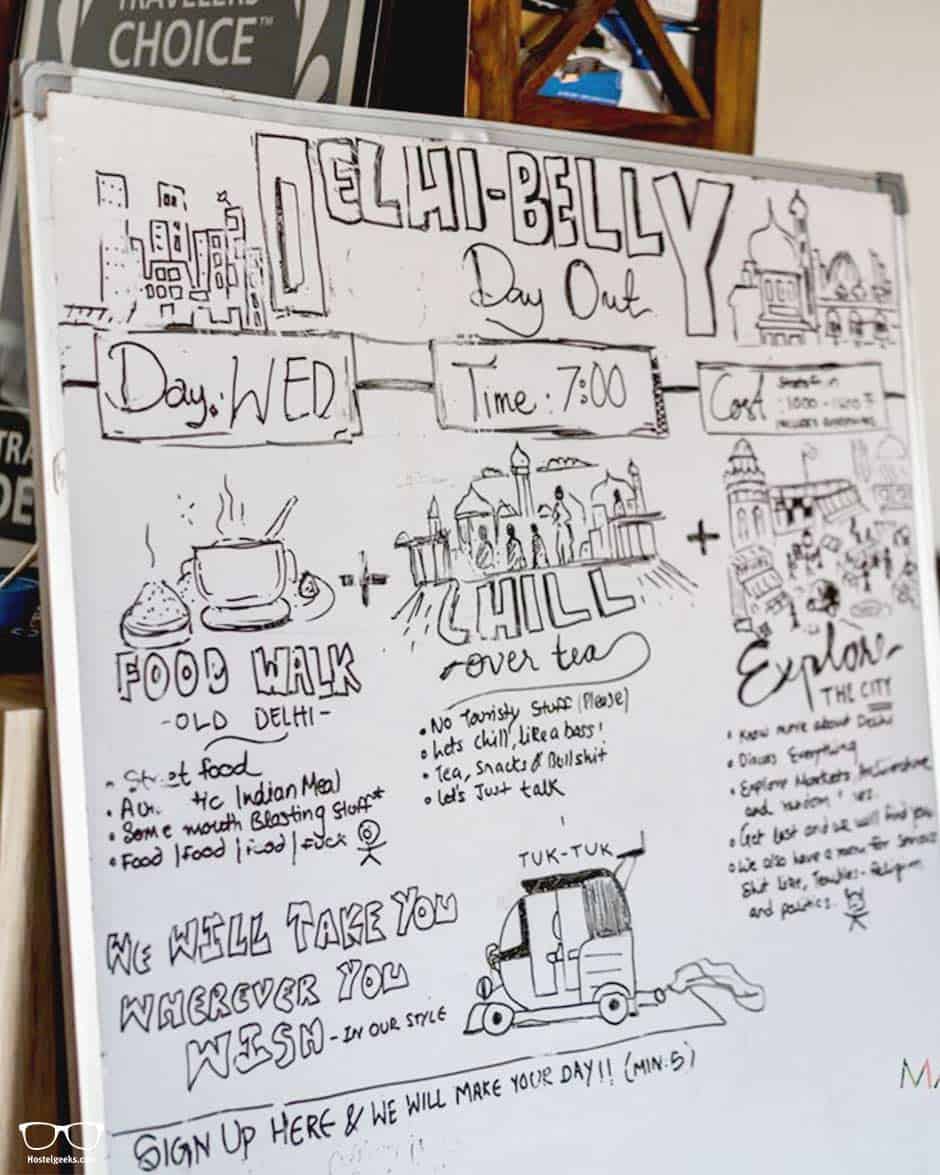 TRAVELERS'
CHOICE™
DELHI-BELLY
Day Out
Day: WED
Time: 7:00
Cost
FOOD WALK
-OLD DELHI-
• food
• Indian Meal
• Some mouth Blasting Stuff*
• Food / food / food / fuck
CHILL
over tea
• No Touristy Stuff (Please)
• Lets chill, like a bass!
• Tea, Snacks & Bullshit
• Let's Just talk
Explore
THE CITY
• Know more about Delhi
• Discuss Everything
• Explore Markets
and random
• Get lost and we will find you
• We also have a menu for Serious
Shit like, Religion
and politics.
TUK-TUK
WE WILL TAKE YOU
WHEREVER YOU
WISH - IN OUR STYLE
SIGN UP HERE & WE WILL MAKE YOUR DAY!! (MIN. 5)
Hostelgeeks.com